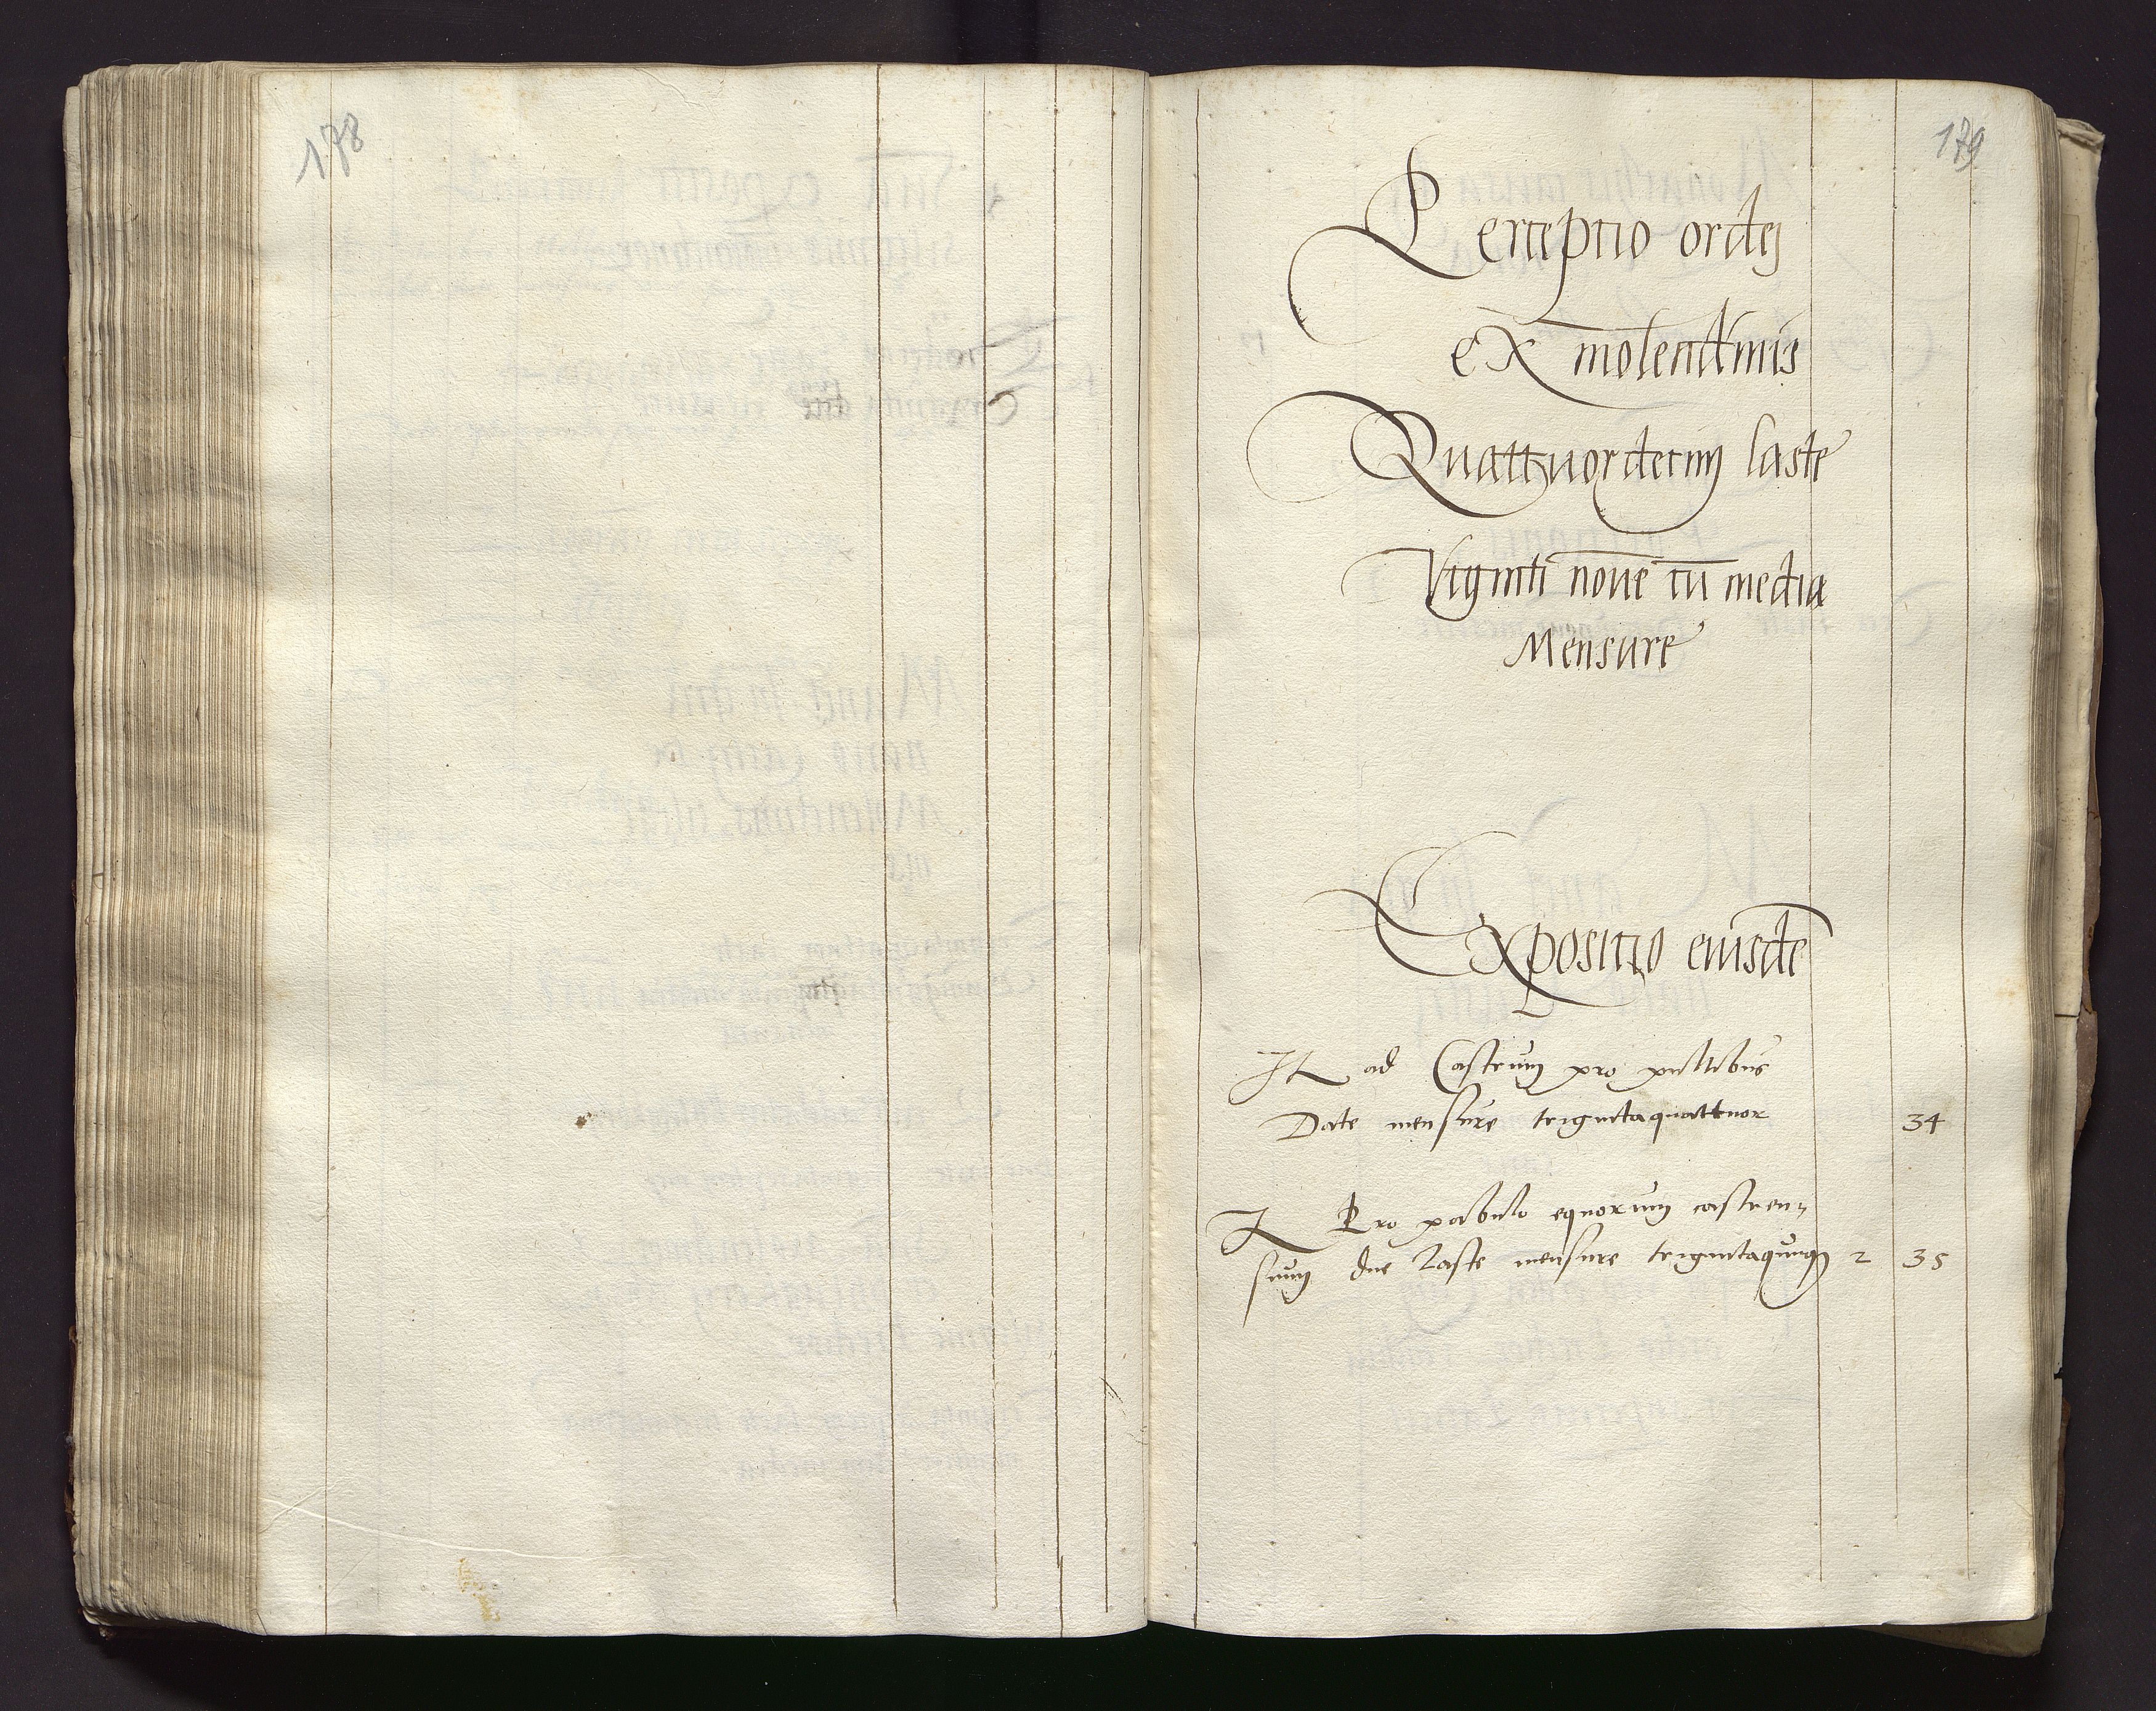 178
179
Perceptio ordej
ex molendinis
Quattuordecim laste
Viginti nove cu media
Mensure
Expositio eiusde
It ad Castrum pro pultibus
Date mensure trigintaquattuor 34
It Pro pabulo equorum castren
sium due laste mensure trigintaquinq 2 35